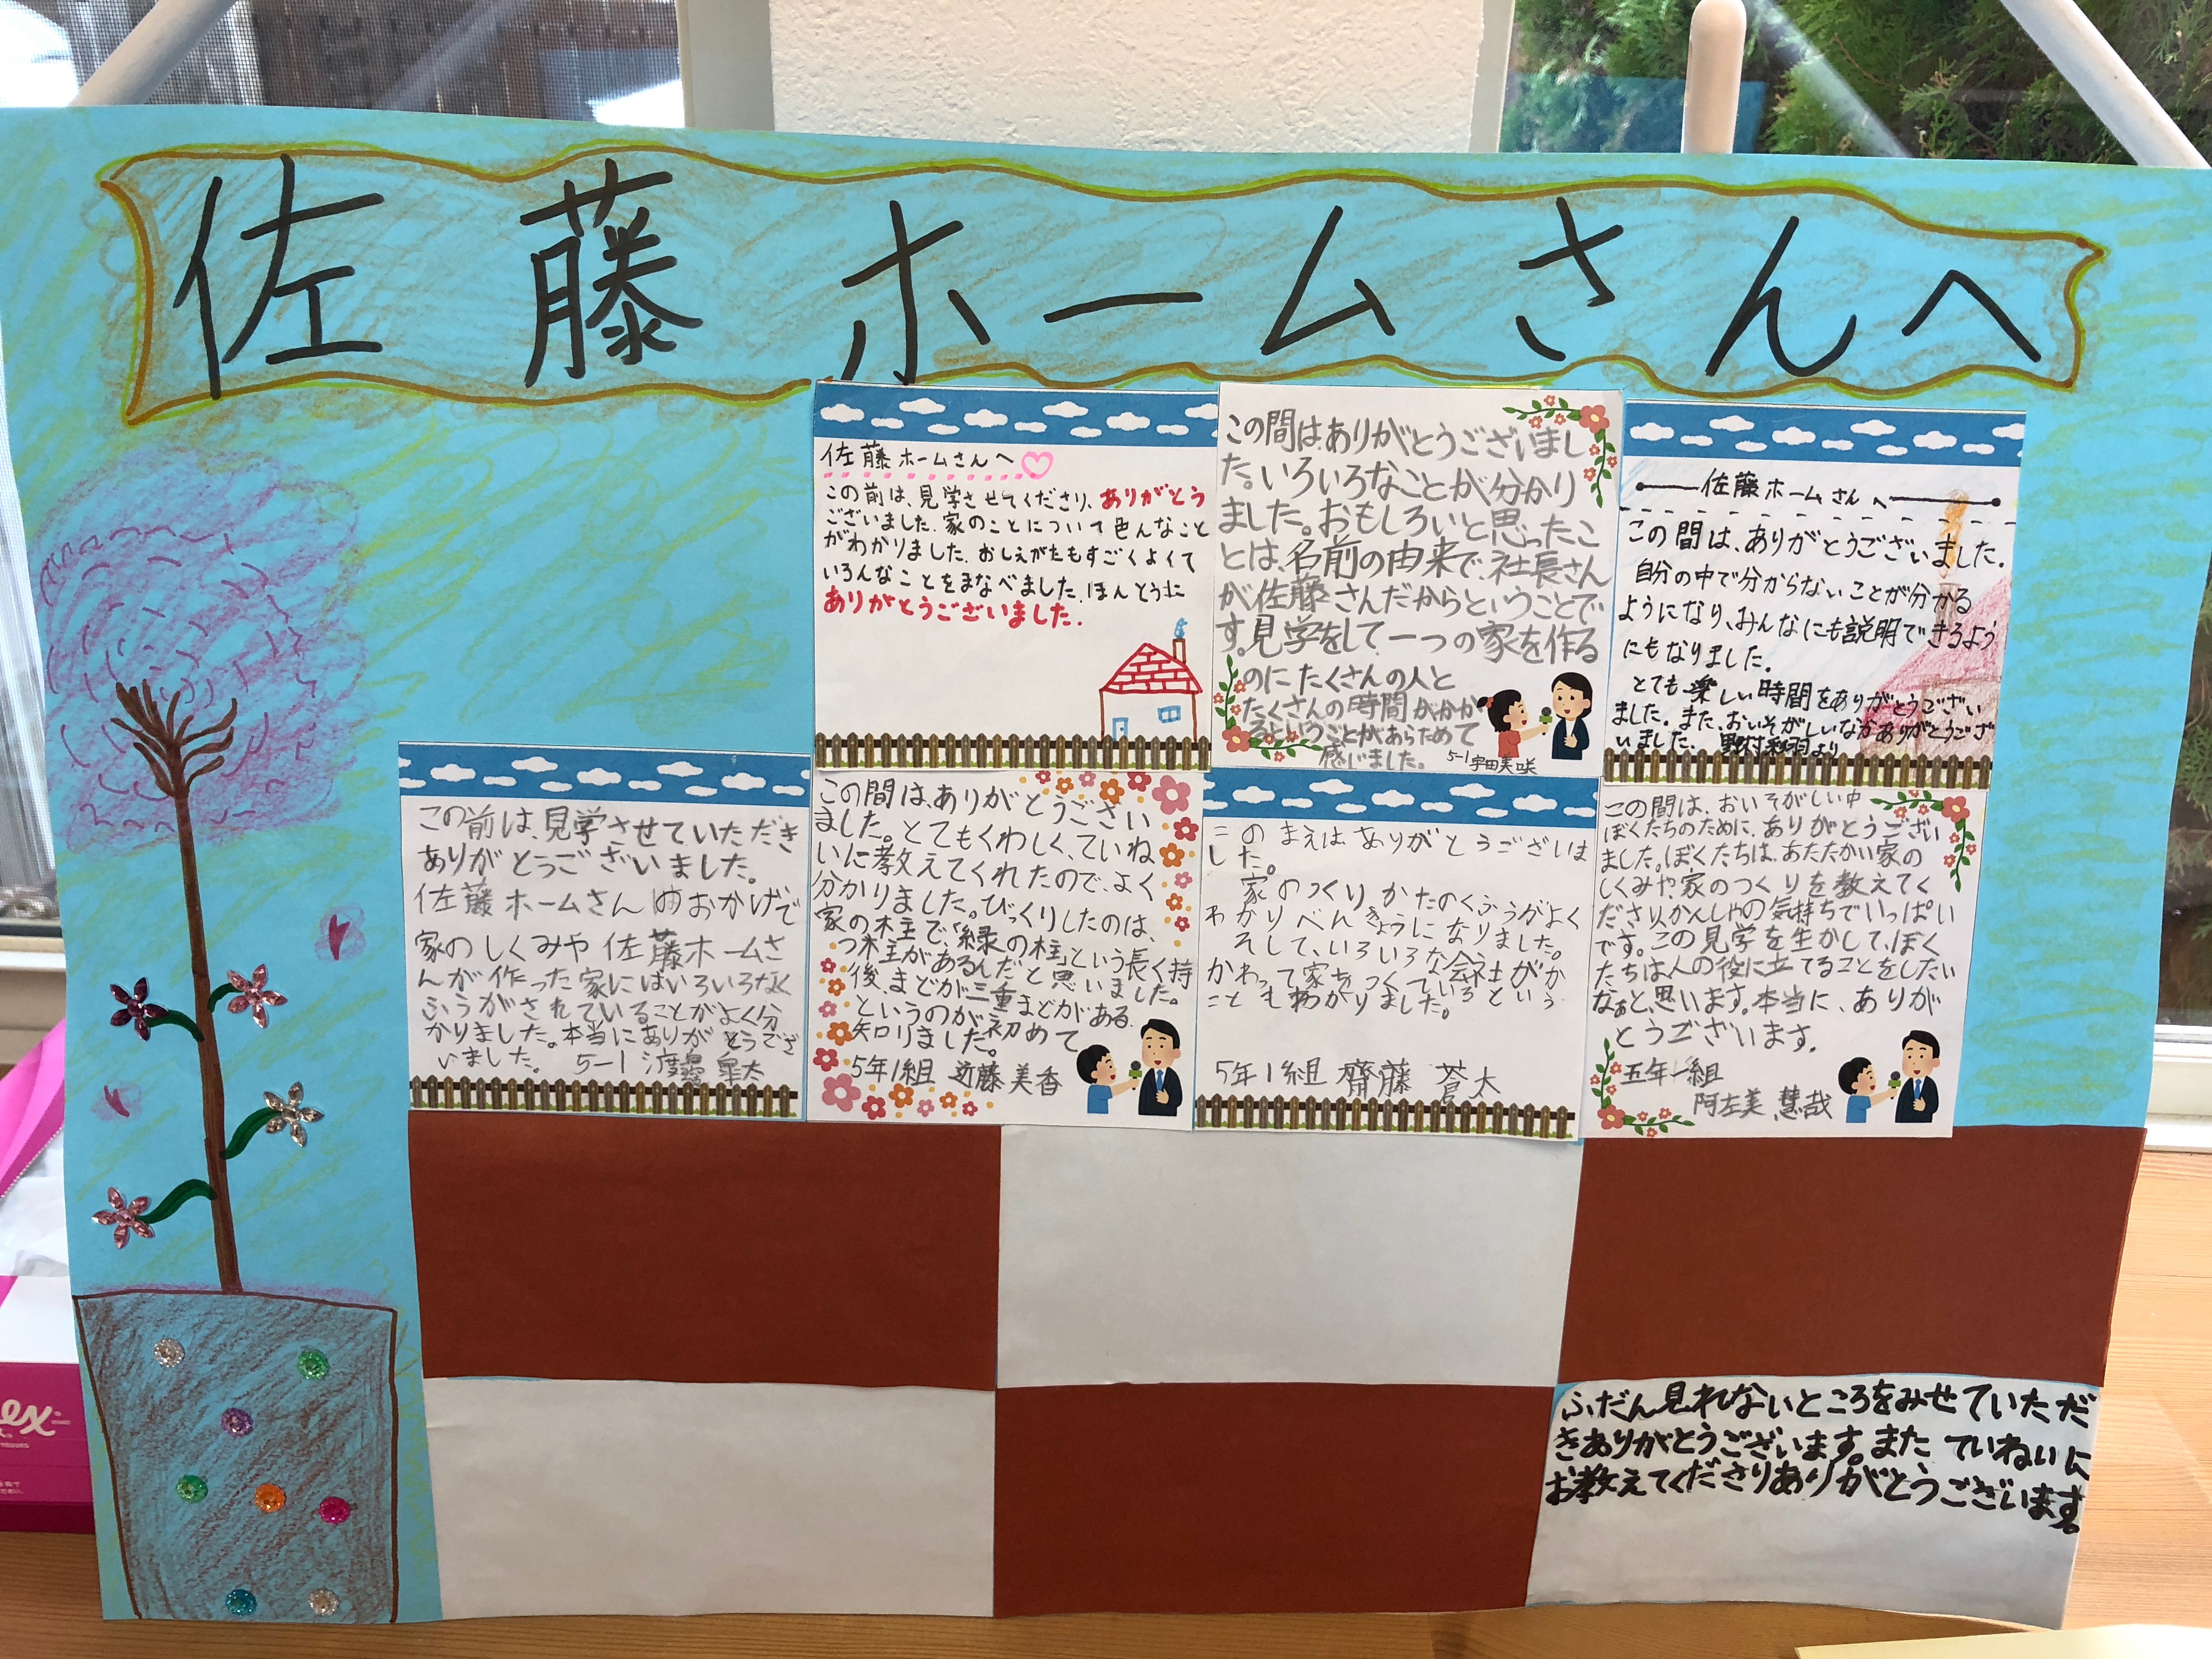 佐藤ホームさんへ
佐藤ホームさんへ
この前は、見学させてくださり、ありがとう
ございました。家のことについて色んなこと
がわかりました。おしえがたもすごくよくて
いろんなことをまなべました。ほんとうに
ありがとうございました。
この間は、ありがとうございまし
た。いろいろなことが分かり
ました。おもしろいと思ったこ
とは、名前の由来で、社長さん
が佐藤さんだからということで
す。見学をして一つの家を作る
のにたくさんの人と
たくさんの時間がかか
るということがあらためて
感じました。
5-1 宇田美咲
佐藤ホームさんへ
この間は、ありがとうございました。
自分の中で分からないことが分かる
ようになり、みんなにも説明できるよう
にもなりました。
とても楽しい時間をありがとうござい
ました。また、おいそがしいなかありがとうござ
いました。 野村 より
この前は、見学させていただき
ありがとうございました。
佐藤ホームさんのおかげで
家のしくみや佐藤ホームさ
んが作った家にはいろいろなく
ふうがされていることがよく分
かりました。本当にありがとうござ
いました。 5-1 渡邉 太
この間は、ありがとうござい
ました。とてもくわしく、ていね
いに教えてくれたので、よく
分かりました。びっくりしたのは、
家の柱で、「緑の柱」という長く持
つ柱があるんだと思いました。
後、まどが三重まどがある
というのが初めて
知りました。
5年1組 近藤 美香
このまえは、ありがとうございま
した。
家のつくりかたのくふうがよく
わかりべんきょうになりました。
そして、いろいろな会社がか
かわって家をつくっているという
こともわかりました。
5年1組 齋藤 蒼太
この間は、おいそがしい中
ぼくたちのために、ありがとうござい
ました。ぼくたちは、あたたかい家の
しくみや、家のつくりを教えてく
ださり、かんしゃの気持ちでいっぱい
です。この見学を生かして、ぼく
たちは人の役に立てることをしたい
なぁと、思います。本当に、ありが
とうございます。
五年一組
阿左美 慧哉
ふだん見れないところをみせていただ
きありがとうございます。また ていねいに
お教えてくださりありがとうございます。
ex